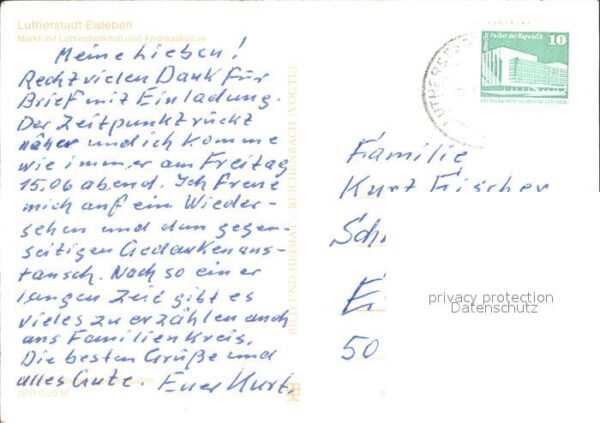 Lutherstadt Eisleben
Markt mit Lutherdenkmal und Andreaskirche
Meine Lieben!
Recht vielen Dank für
Brief mit Einladung.
Der Zeitpunkt rückt
näher und ich komme
wie immer am Freitag
15.06 abend. Ich freue
mich auf ein Wieder-
sehen und dem gegen-
seitigen Gedankenaus-
tausch. Nach so einer
langen Zeit gibt es
vieles zu erzählen auch
aus Familienkreis.
Die besten Grüße und
alles Gute. Euer Kurt.
BILD UND HEIMAT REICHENBACH (VOGTL)
Berlin, Palast der Republik
10
LUTHERS
Familie
Kurt Fischer
Sch
E
50
privacy protection
Datenschutz